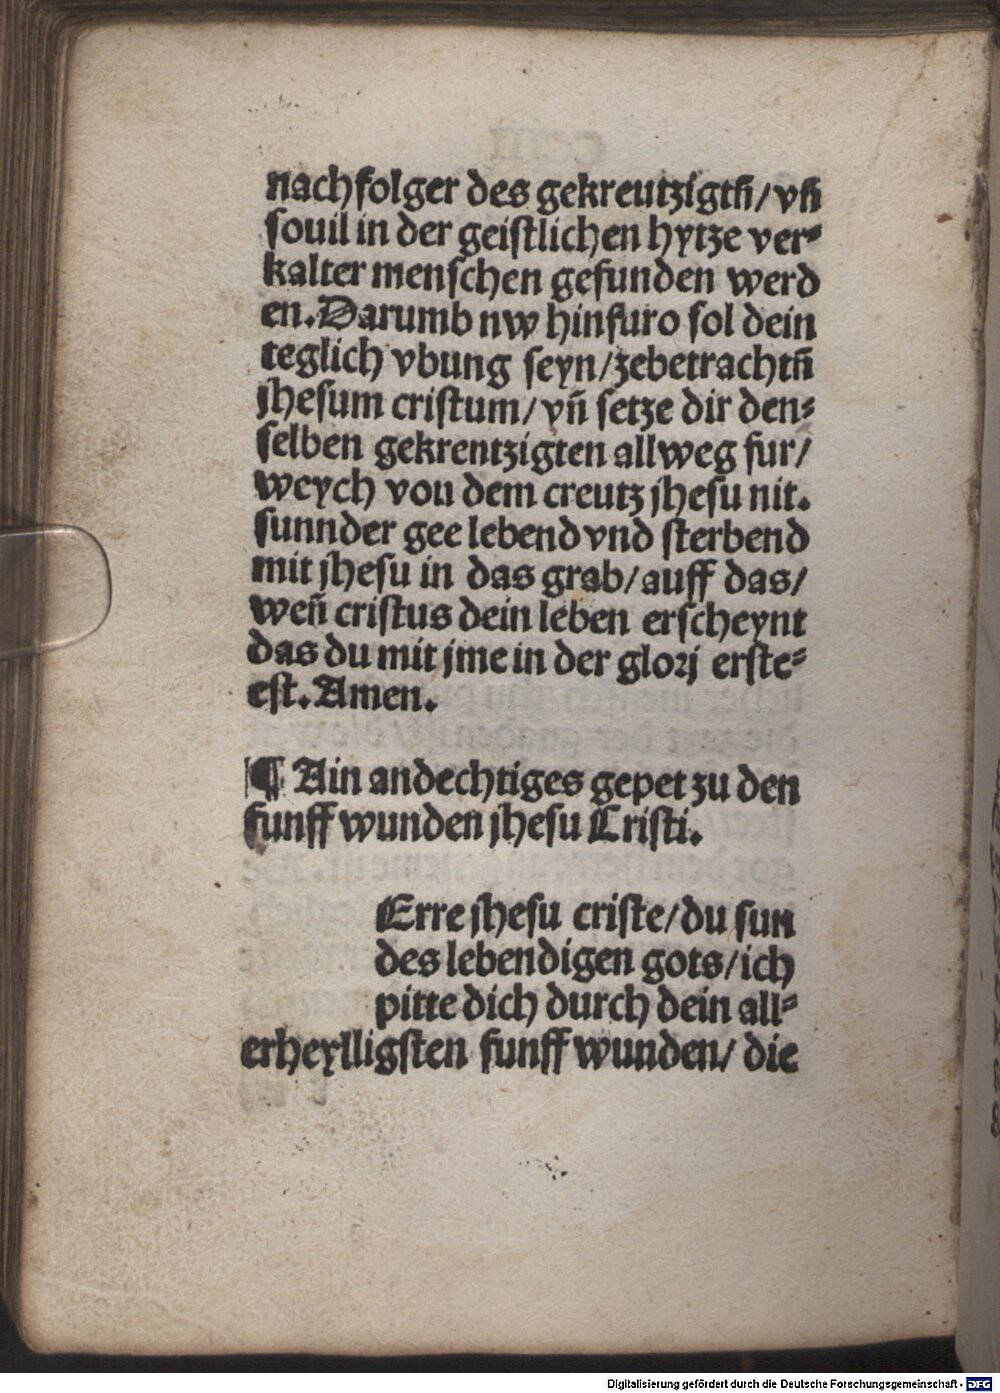 nachfolger des gekreutzigtn̄/ vn̄
souil in der geistlichen hytze ver⸗
kalter menschen gefunden werd
en. Darumb nw hinfuro sol dein
teglich vbung seyn/zebetrachtn̄
jhesum cristum/ vn̄ setze dir den⸗
selben gekrentzigten allweg fur/
weych von dem creutz jhesu nit.
sunnder gee lebend vnd sterbend
mit jhesu in das grab/ auff das/
wen̄ cristus dein leben erscheynt
das du mit jme in der glorj erste⸗
est. Amen.
¶ Ain andechtiges gepet zu den
funff wunden jhesu Cristi.
Erre jhesu criste/ du sun
des lebendigen gots/ ich
pitte dich durch dein all⸗
erheylligsten funff wunden/ die
Digitalisierung gefördert durch die Deutsche Forschungsgemeinschaft - DFG